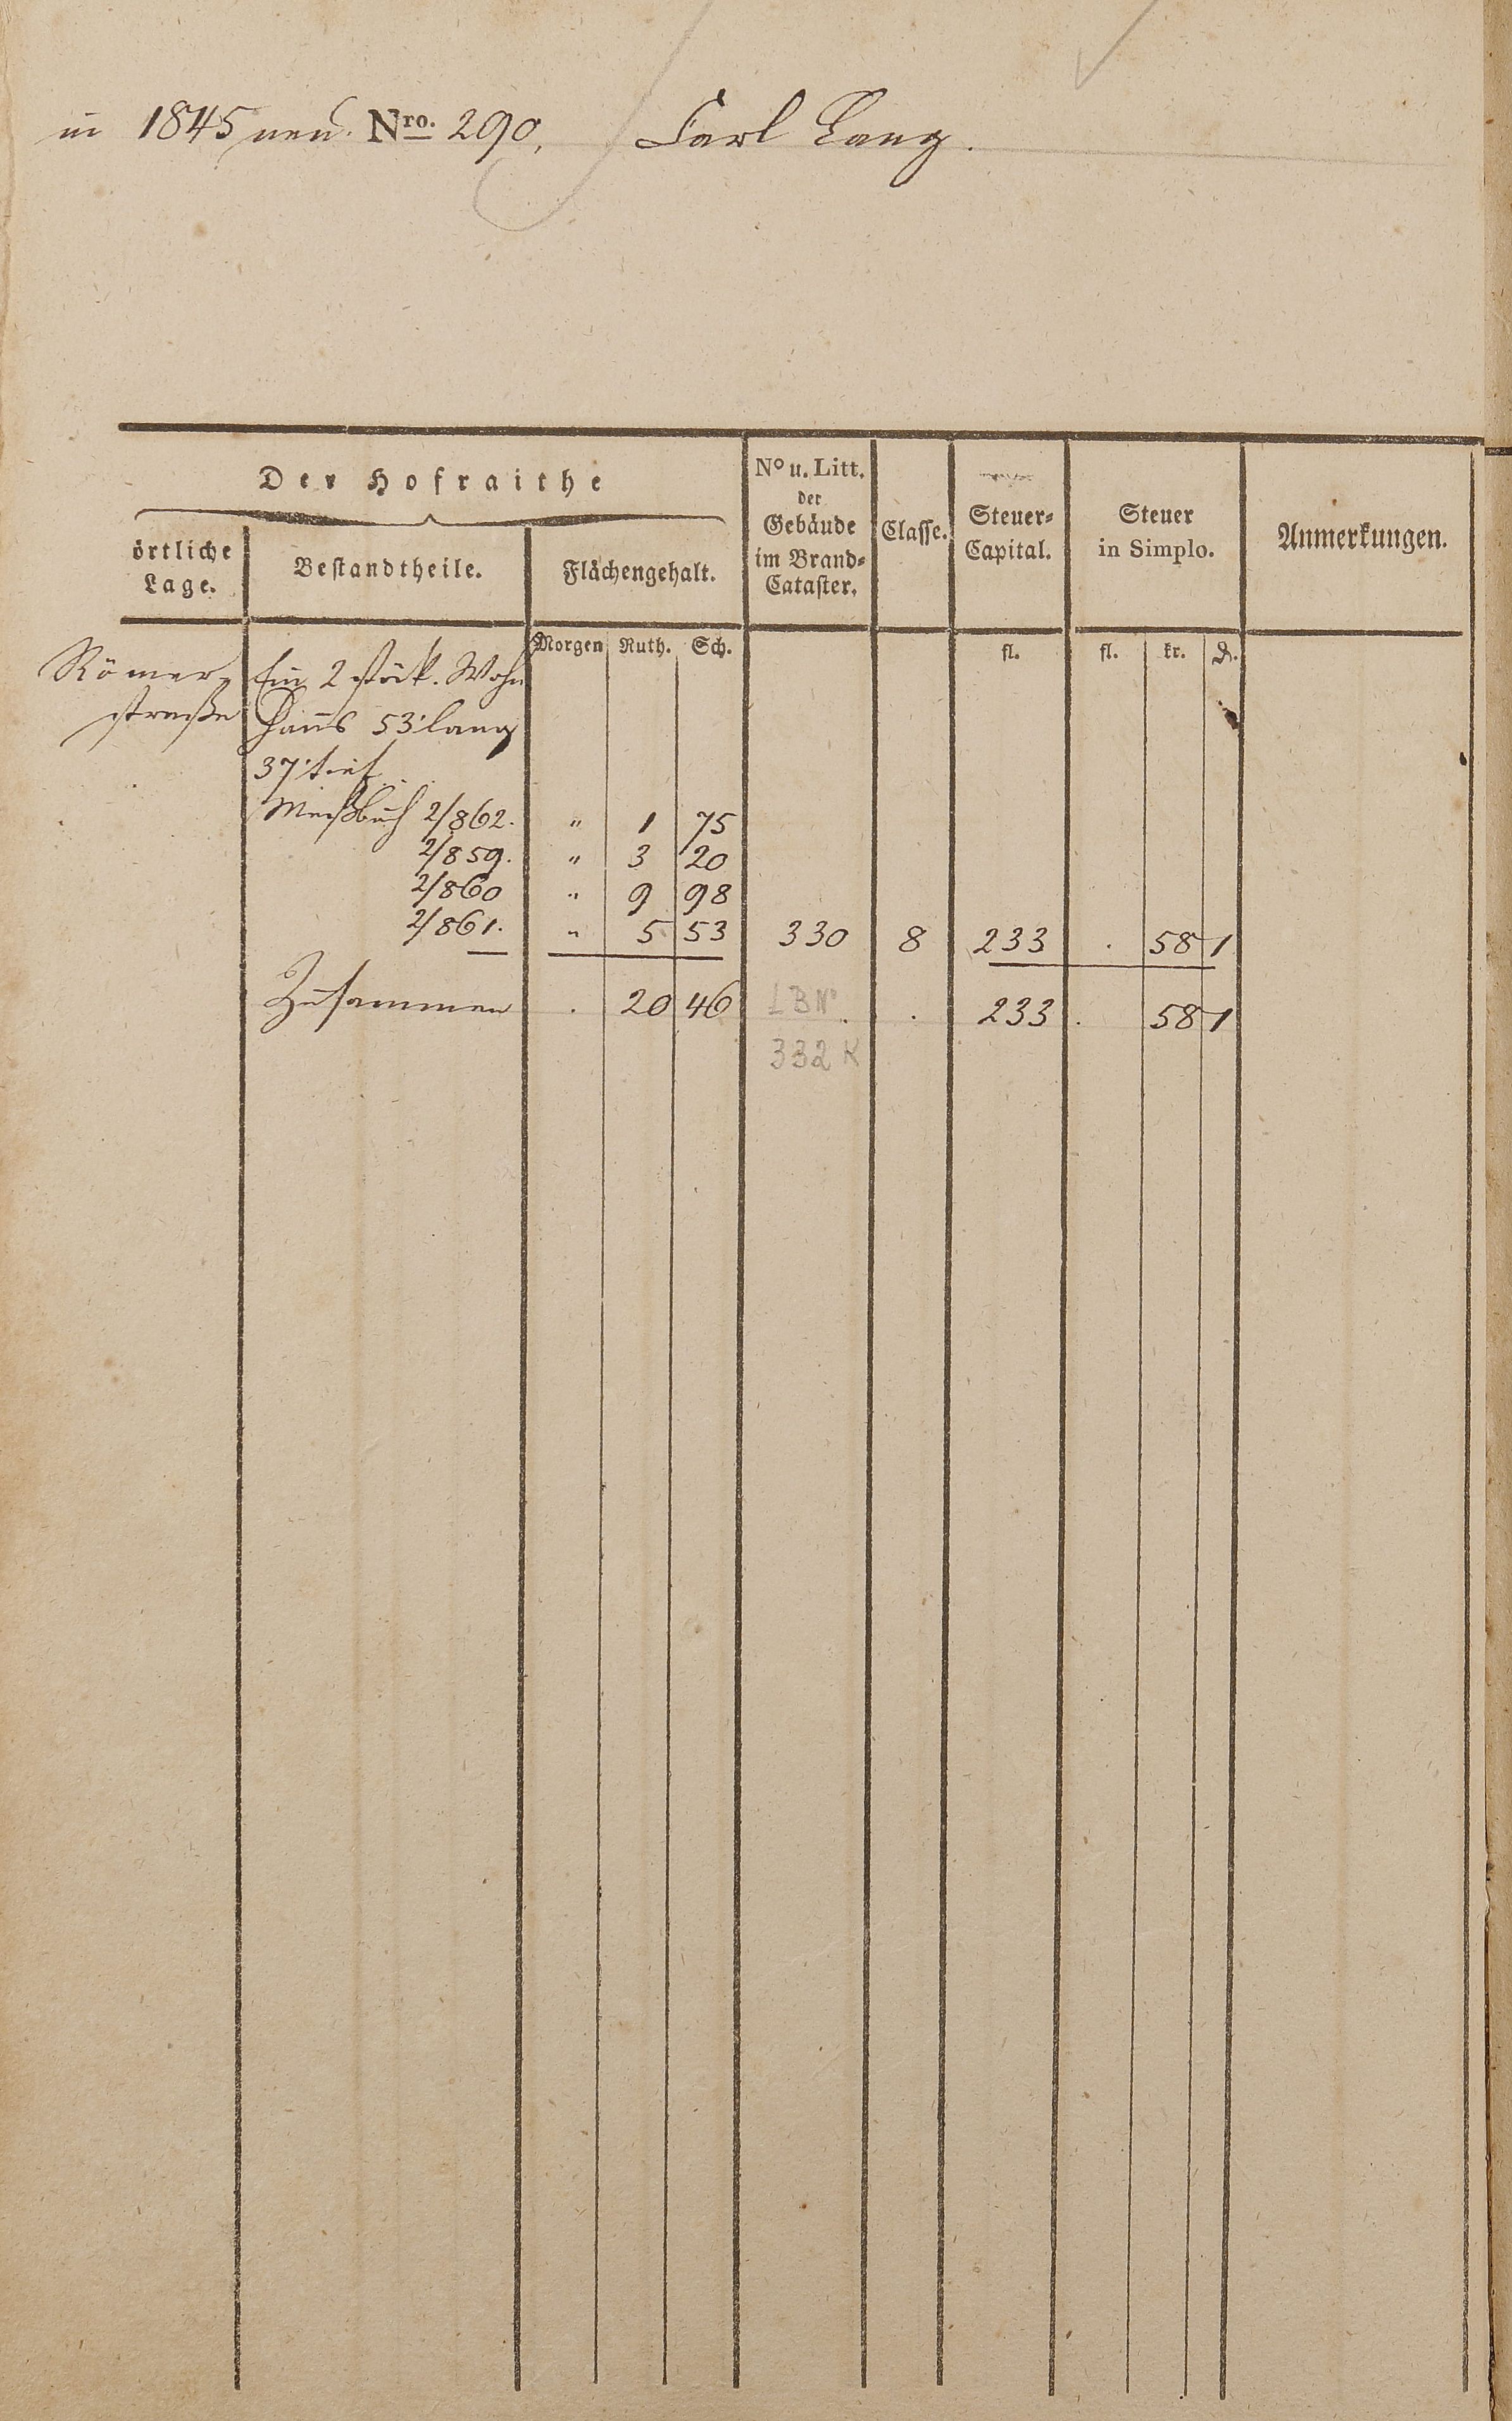 in 1845 neu. Nro. 290. Carl Lang.
Der Hofraithe
örtliche Lage.
Bestandtheile.
Flächengehalt.
No u. Litt. der Gebäude im Brand-Cataster.
Classe.
Steuer-Capital.
Steuer in Simplo.
Anmerkungen.
Morgen Ruth. Sch. fl. fl. kr. ₰.
Römer- Ein 2 stöck. Wohn
straße Haus 53' lang
37' tief
Meßbuch 2/862. " 1 75
2/859. " 3 20
2/860 " 9 98
2/861. " 5 53 330 8 233 . 58 1
Zusammen . 20 46 LBN . . 233 . 58 1
332 K